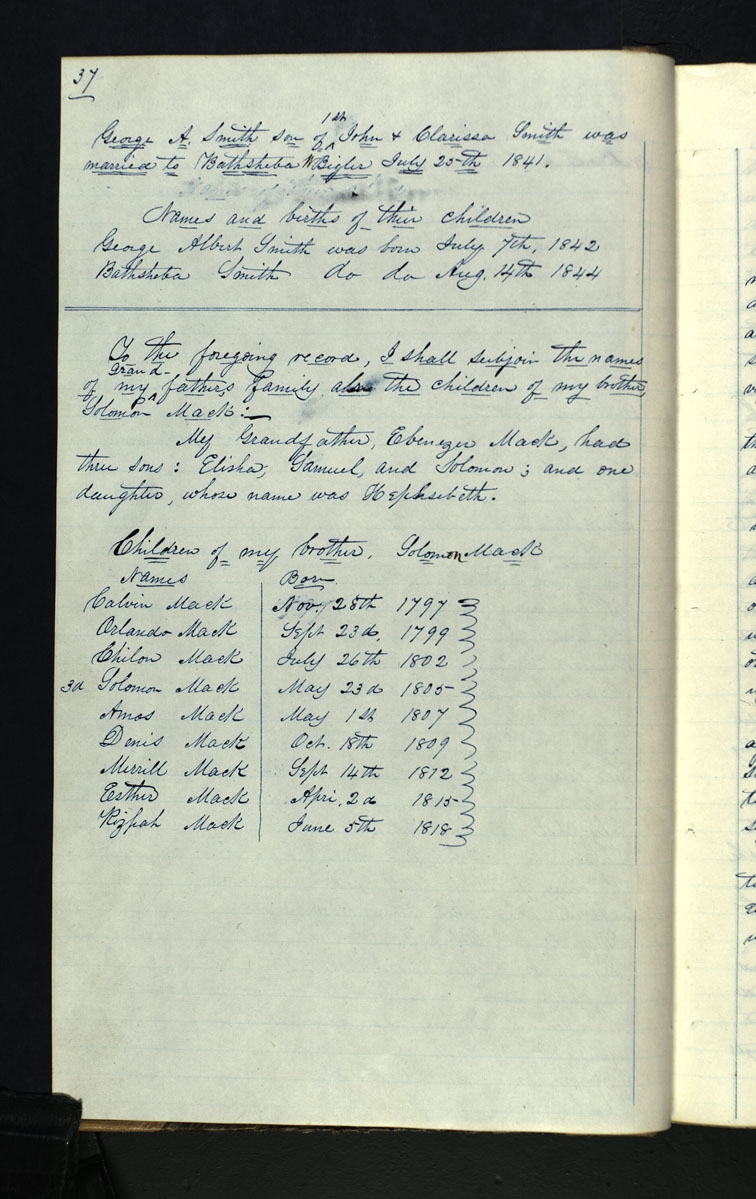 37
George A. Smith son of 1st John & Clarissa Smith was
married to Bathsheba W Bigler July 25th 1841.
Names and births of their children
George Albert Smith was born July 7th, 1842
Bathsheba Smith do do Aug. 14th 1844
To the foregoing record, I shall subjoin the names
of my grand-father's family also the children of my brother,
Solomon Mack:—
My Grandfather, Ebenezer Mack, had
three sons: Elisha, Samuel, and Solomon; and one
daughter, whose name was Hephsebeth.
Children of my brother, Solomon Mack
Names Born
Calvin Mack Nov. 28th 1797
Orlando Mack Sept 23d, 1799
Chilon Mack July 26th 1802
3d Solomon Mack May 23d 1805
Amos Mack May 1st 1807
Denis Mack Oct. 18th 1809
Merrill Mack Sept 14th 1812
Esther Mack Apri. 2d 1815
Rizpah Mack June 5th 1818